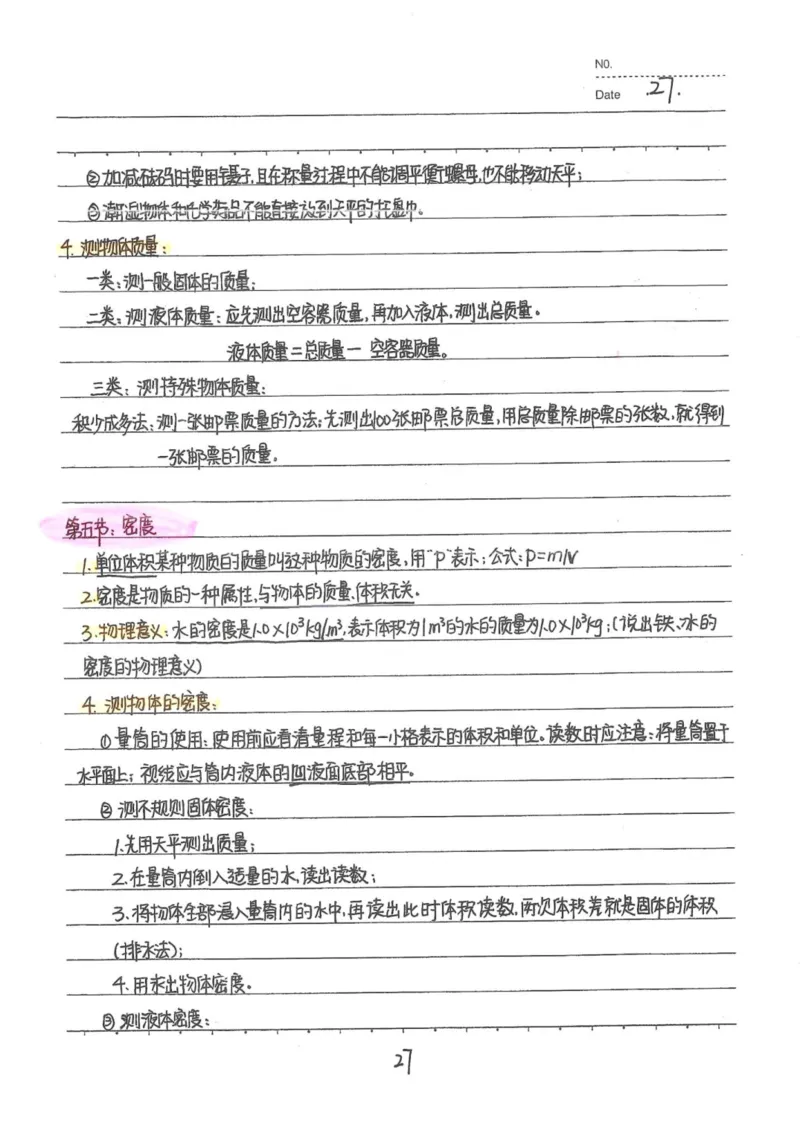 NO.
Date .27.
②加减砝码时要用镊子,且在称量过程中不能调平衡螺母,也不能移动天平;
③潮湿物体和化学药品不能直接放到天平的托盘中。
4. 测物体质量:
一类:测一般固体的质量;
二类:测液体质量:应先测出空容器质量,再加入液体,测出总质量。
液体质量=总质量一 空容器质量。
三类:测特殊物体质量:
积少成多法:测一张邮票质量的方法:先测出100张邮票总质量,用总质量除邮票的张数,就得到
一张邮票的质量。
第五节:密度
1.单位体积某种物质的质量叫这种物质的密度,用"ρ"表示;公式:ρ=m/V
2.密度是物质的一种属性,与物体的质量、体积无关。
3.物理意义:水的密度是1.0×10³kg/m³,表示体积为1m³的水的质量为1.0×10³kg;(说出铁、冰的
密度的物理意义)
4. 测物体的密度:
①量筒的使用:使用前应看清量程和每一小格表示的体积和单位。读数时应注意:将量筒置于
水平面上;视线应与筒内液体的凹液面底部相平。
②测不规则固体密度:
1.先用天平测出质量;
2.在量筒内倒入适量的水,读出读数;
3.将物体全部浸入量筒内的水中,再读出此时体积读数,两次体积差就是固体的体积
(排水法);
4.用求出物体密度。
③测液体密度:
27